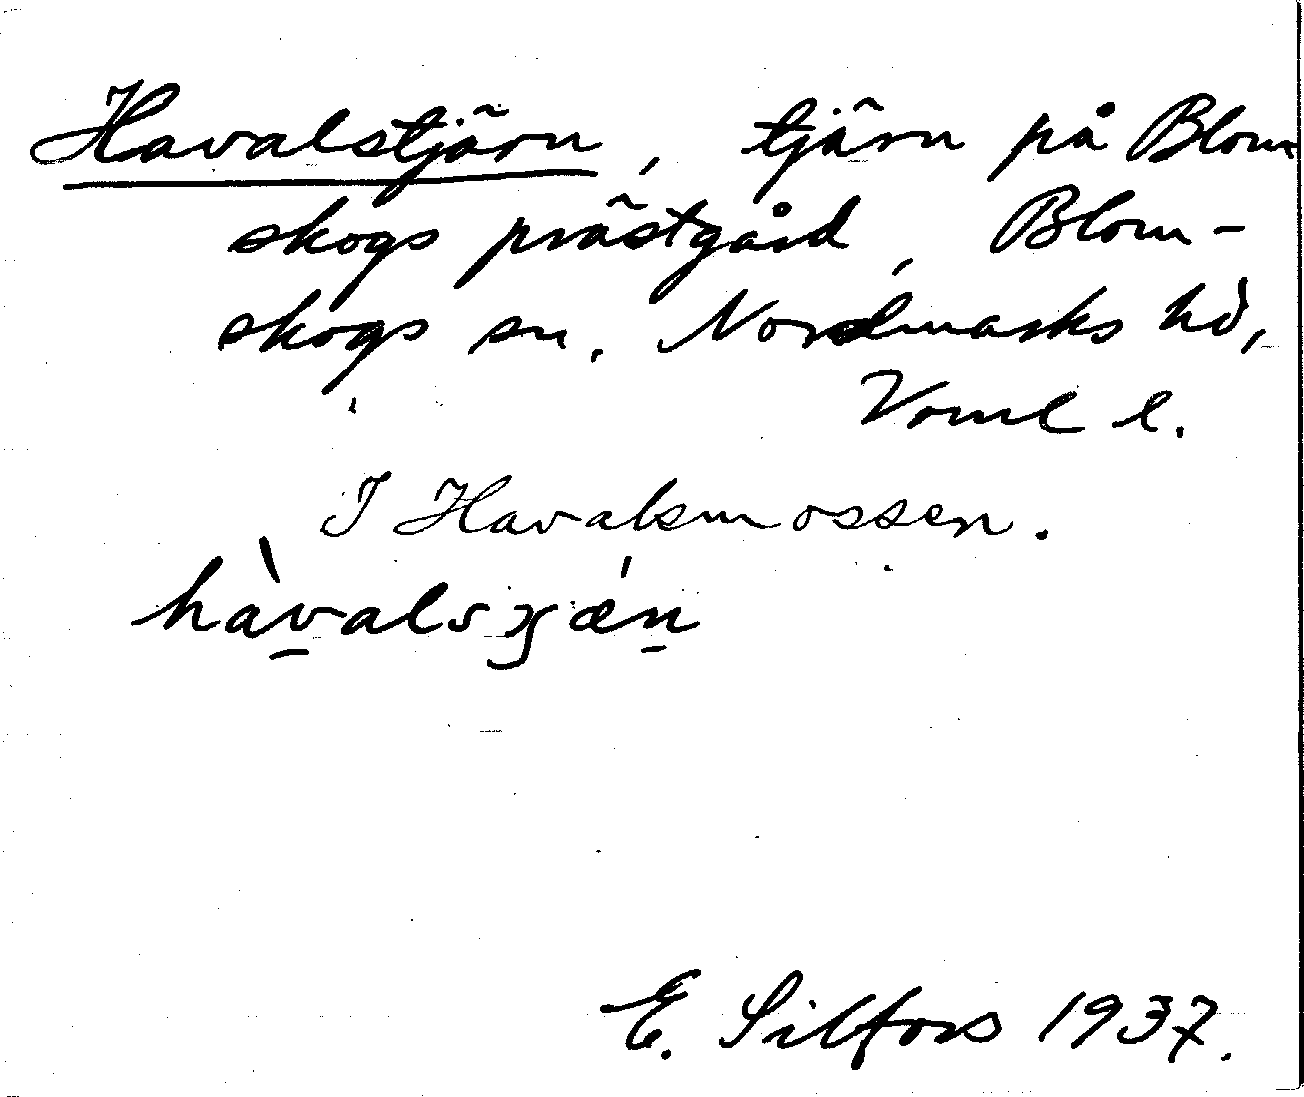 Havalstjärn, tjärn på Blom
skogs prästgård, Blom-
skogs sn. Nordmarks hd,
Verml l.
I Havalsmossen.
hàvalsɟǽn
E. Silfors 1937.